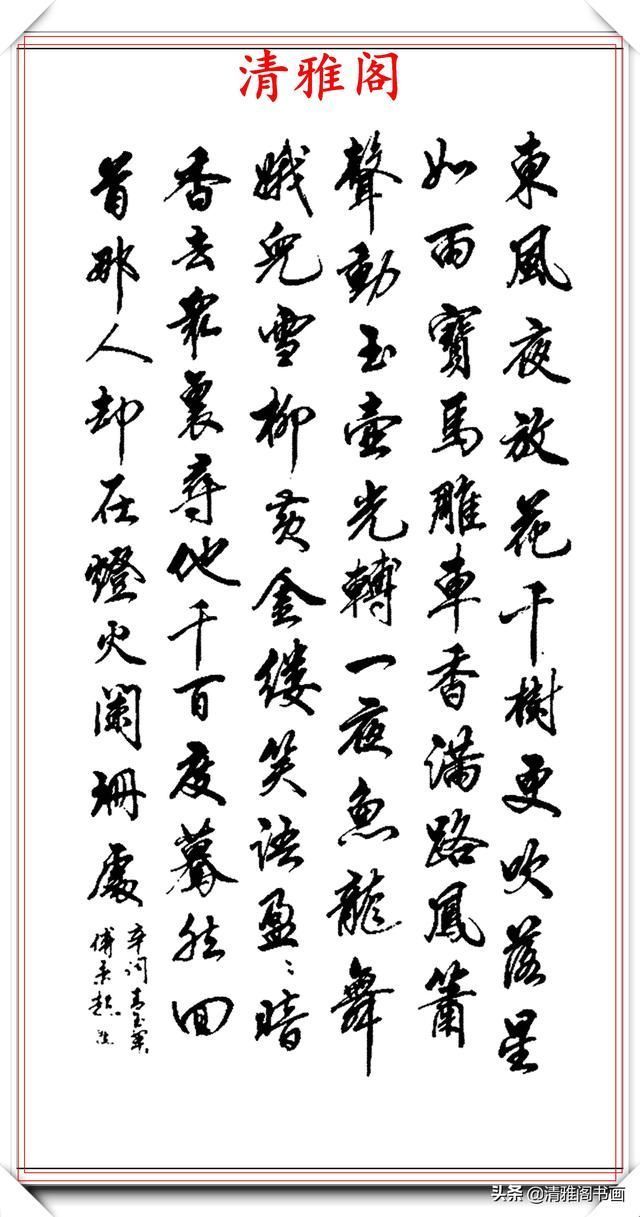 清雅阁
東風夜放花千樹更吹落星
如雨寶馬雕車香滿路鳳簫
聲動玉壺光轉一夜魚龍舞
娥兒雪柳黃金缕笑語盈〻暗
香去衆裏尋他千百度驀然回
首那人却在燈火闌珊處
辛词青玉案
傅秉
头条@清雅阁书画